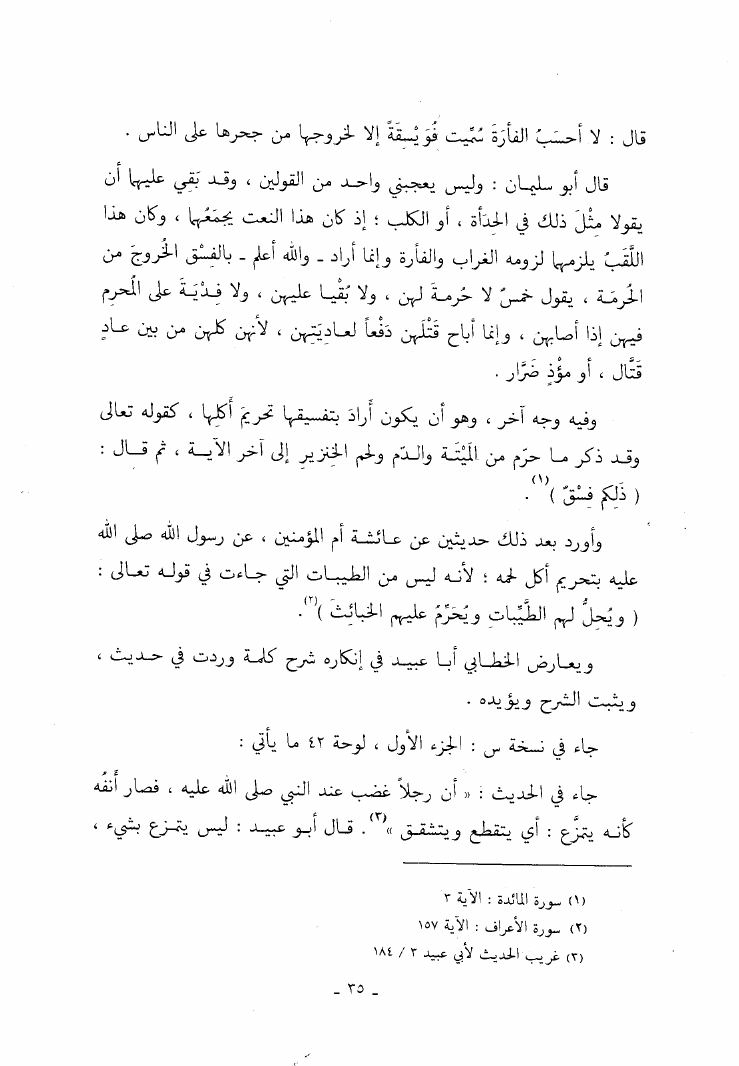 قال : لا أحسَبُ الفأرَةَ سُمِّيت فُوَيْسقَةً إلا لخروجها من جحرها على الناس .
قال أبو سليمان : وليس يعجبني واحد من القولين ، وقد بَقي عليهما أن
يقولا مِثْلَ ذلك في الحِدَأة ، أو الكلب ؛ إذ كان هذا النعت يجمَعُهما ، وكان هذا
اللَّقَبُ يلزمهما لزومه الغراب والفأرة وإنما أراد ـ والله أعلم ـ بالفِسْق الخُروجَ من
الحُرمَة ، يقول خمسٌ لا حُرمةَ لهن ، ولا بُقْيا عليهن ، ولا فِدْيَةَ على المحرم
فيهن إذا أصابهن ، وإنما أباح قَتْلَهن دَفْعاً لعاديَتِهن ، لأنهن كلهن من بين عادٍ
قَتَّال ، أو مؤْذٍ ضَرَّار .
وفيه وجه آخر ، وهو أن يكون أرادَ بتفسيقها تحريمَ أكلِها ، كقوله تعالى
وقد ذكر ما حرّم من المَيْتَة والدّم ولحم الخنزير إلى آخر الآية ، ثم قال :
( ذَلِكم فِسْقٌ )(١) .
وأورد بعد ذلك حديثين عن عائشة أم المؤمنين ، عن رسول الله صلى الله
عليه بتحريم أكل لحمه ؛ لأنه ليس من الطيبات التي جاءت في قوله تعالى :
( ويُحِلُّ لهم الطَّيِّباتِ ويُحَرِّمُ عليهم الخبائِثَ )(٢).
ويعارض الخطابي أبا عبيد في إنكاره شرح كلمة وردت في حديث ،
ويثبت الشرح ويؤيده .
جاء في نسخة س : الجزء الأول ، لوحة ٤٢ ما يأتي :
جاء في الحديث : « أن رجلاً غضب عند النبي صلى الله عليه ، فصار أَنفُه
كأنه يتمزَّع : أي يتقطع ويتشقق »(٣). قال أبو عبيد : ليس يتمزع بشيء ،
(١) سورة المائدة : الآية ٣
(٢) سورة الأعراف : الآية ١٥٧
(٣) غريب الحديث لأبي عبيد ٣ / ١٨٤
ـ ٣٥ ـ